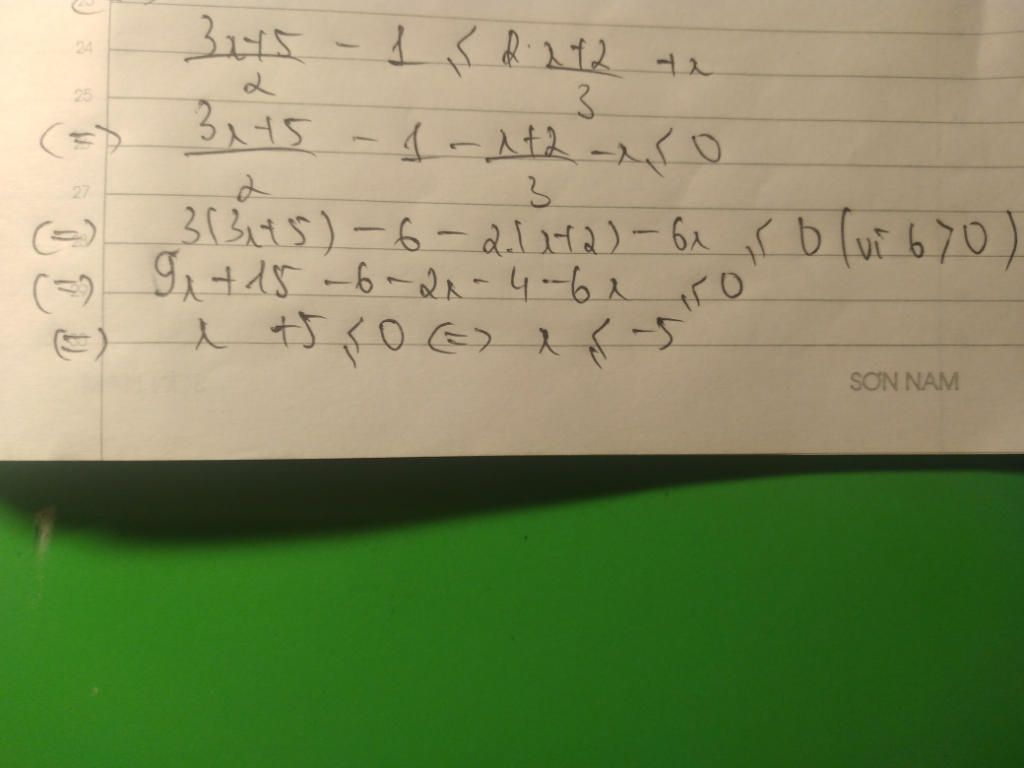 24 (3x+5)/2 - 1 ≤ 2. (x+2)/3 + x
25
(=) (3x+5)/2 - 1 - (x+2)/3 - x ≤ 0
27
(=) 3(3x+5) - 6 - 2.(x+2) - 6x ≤ 0 (vì 6 > 0)
(=) 9x + 15 - 6 - 2x - 4 - 6x ≤ 0
(=) x + 5 ≤ 0 (=) x ≤ -5
SƠN NAM